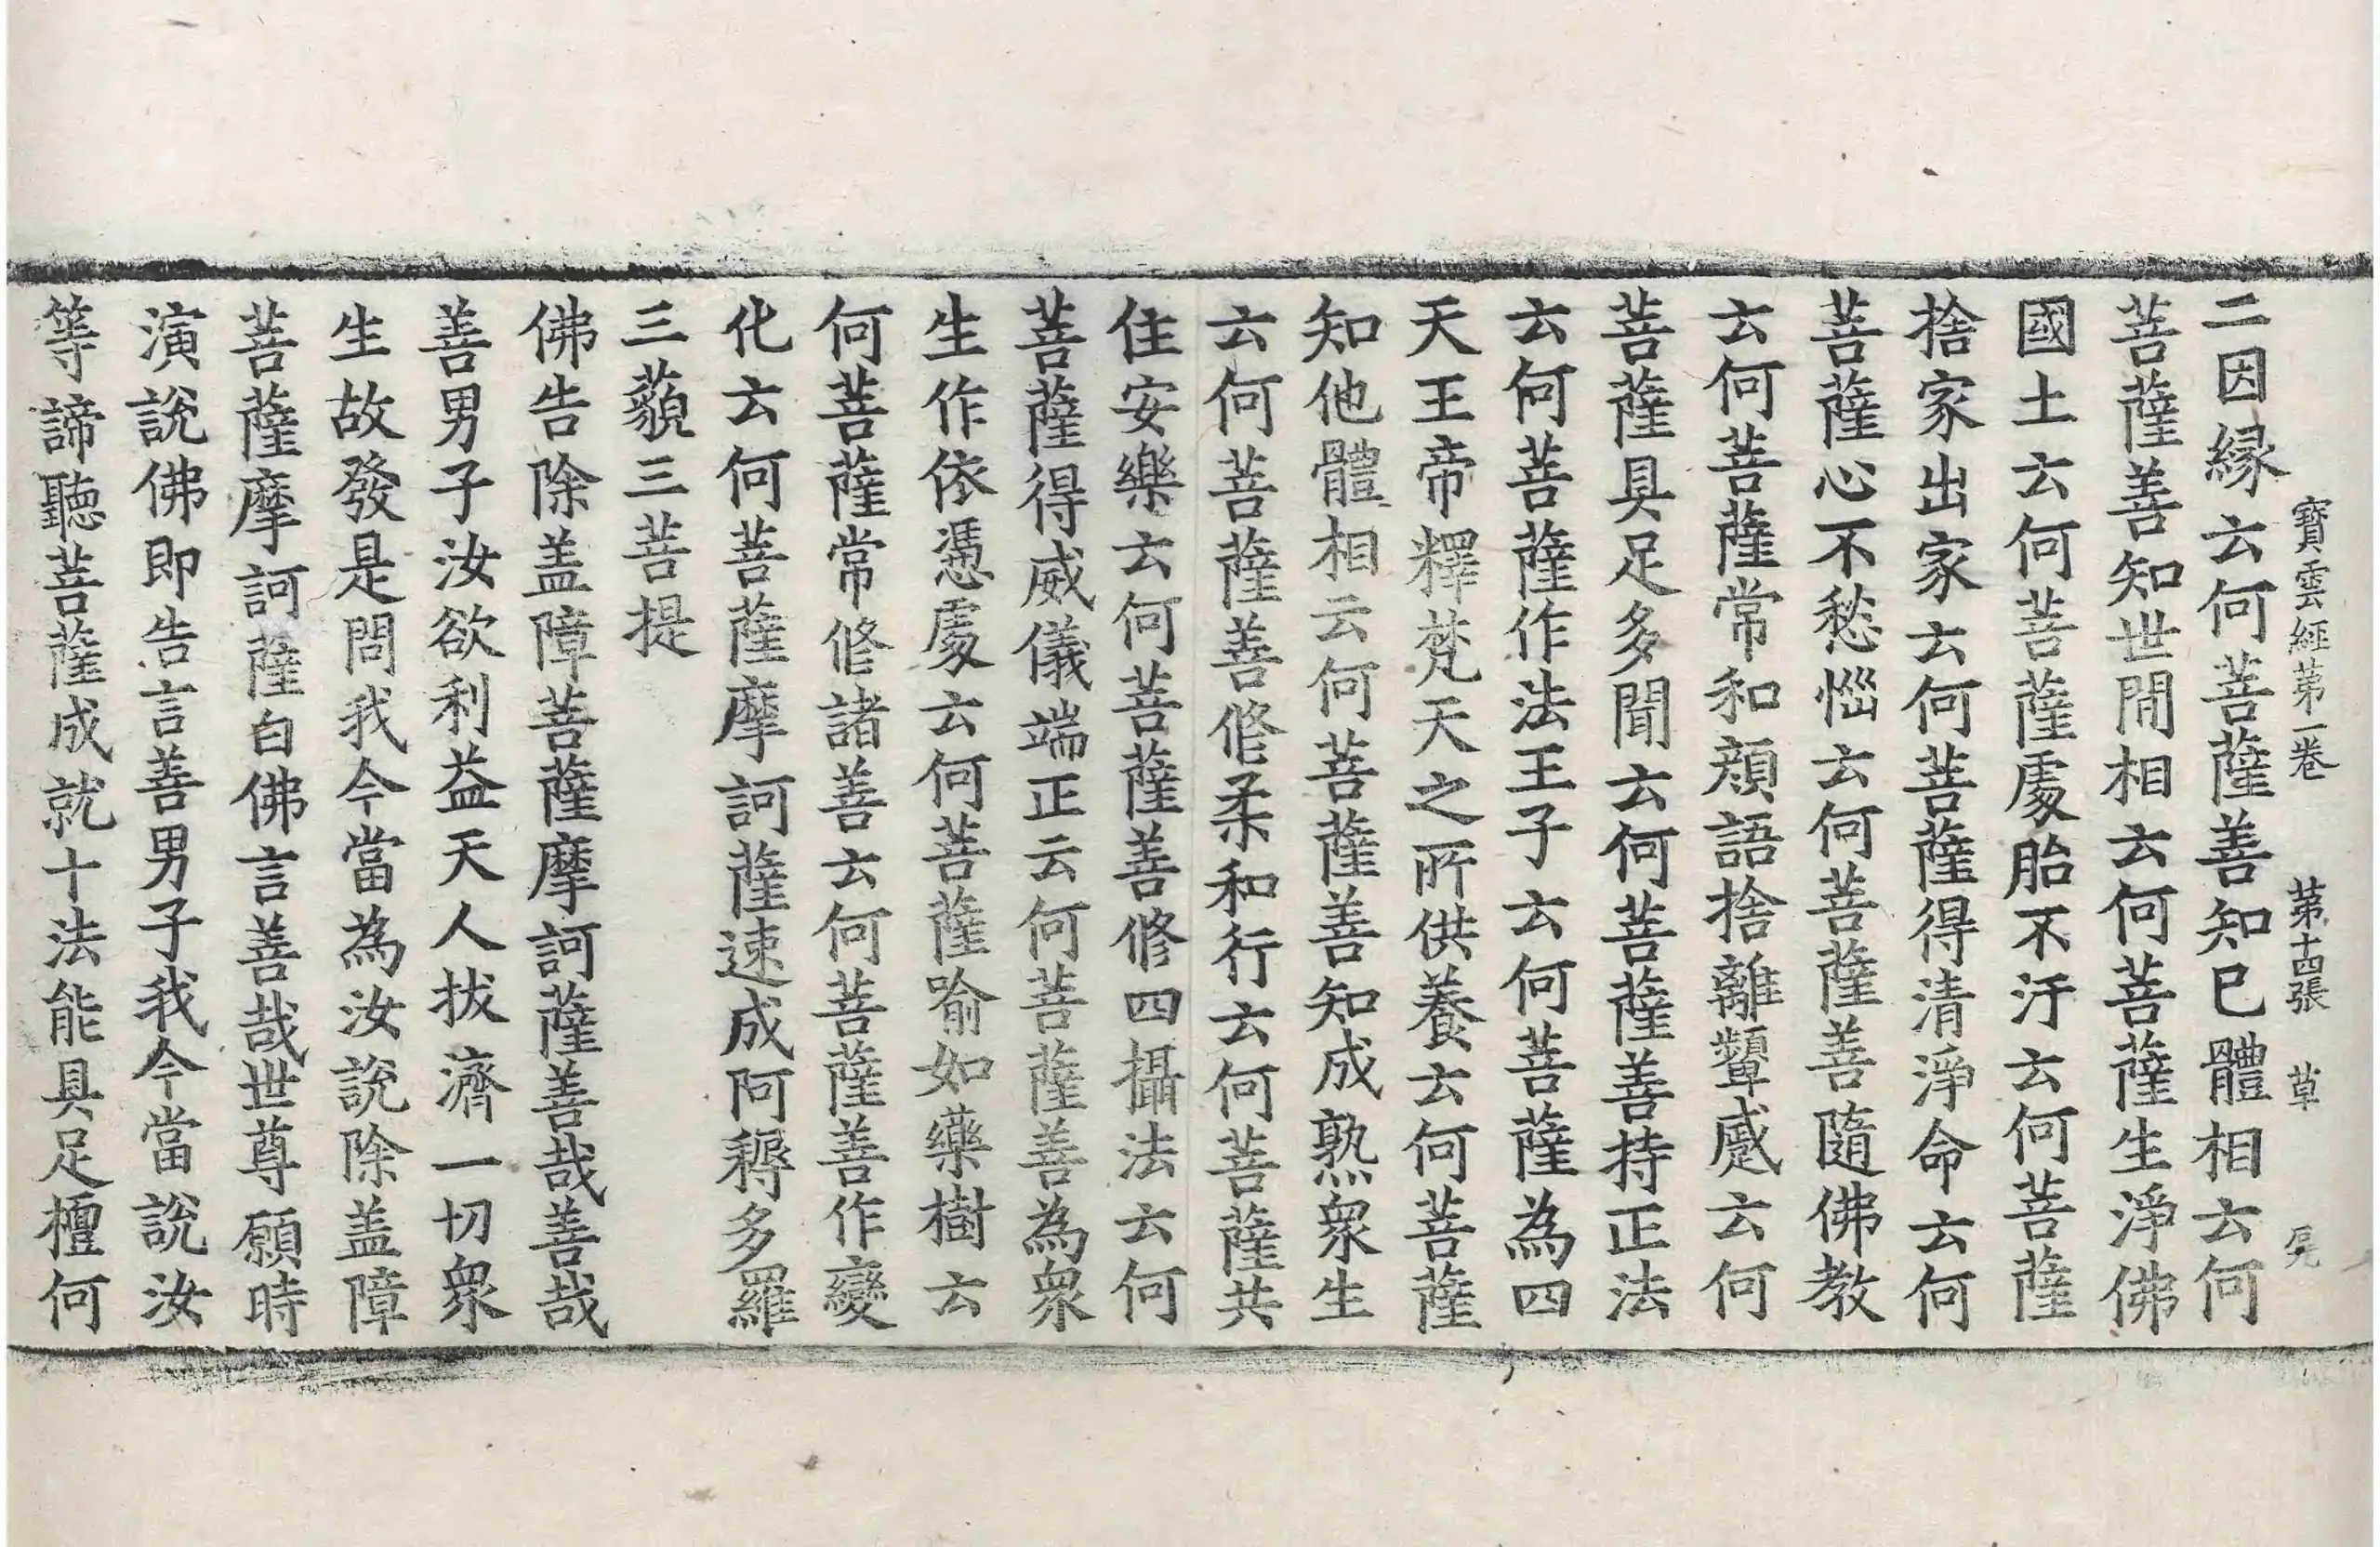 寶雲經第一卷　第十四張　草
二因縁云何菩薩善知巳體相云何
菩薩善知世間相云何菩薩生淨佛
國土云何菩薩處胎不汙云何菩薩
捨家出家云何菩薩得清淨命云何
菩薩心不愁惱云何菩薩善隨佛教
云何菩薩常和顔語捨離顰蹙云何
菩薩具足多聞云何菩薩善持正法
云何菩薩作法王子云何菩薩為四
天王帝釋梵天之所供養云何菩薩
知他體相云何菩薩善知成熟衆生
云何菩薩善修柔和行云何菩薩共
住安樂云何菩薩善修四攝法云何
菩薩得威儀端正云何菩薩善為衆
生作依憑處云何菩薩喻如藥樹云
何菩薩常修諸善云何菩薩善作變
化云何菩薩摩訶薩速成阿耨多羅
三藐三菩提
佛告除盖障菩薩摩訶薩善哉善哉
善男子汝欲利益天人拔濟一切衆
生故發是問我今當為汝說除盖障
菩薩摩訶薩白佛言善哉世尊願時
演說佛即告言善男子我今當說汝
等諦聽菩薩成就十法能具足檀何